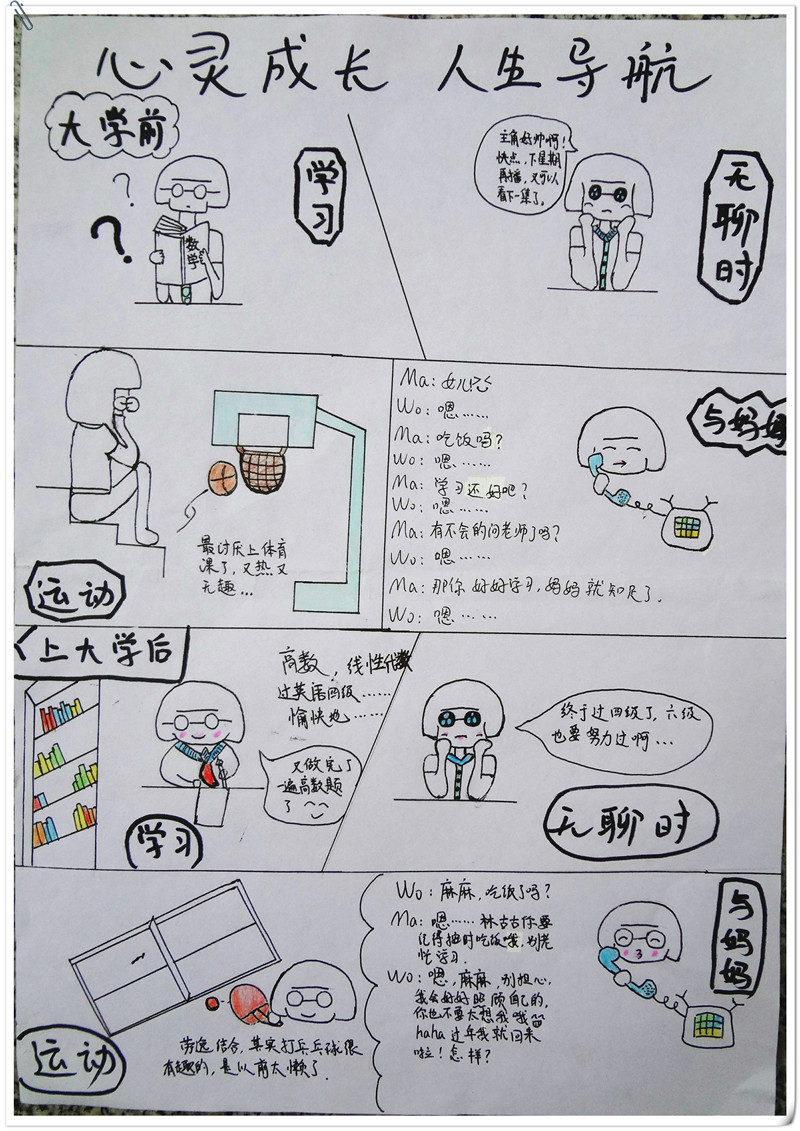 心灵成长 人生导航
大学前
?
?
数学
学习
主角好帅啊!
快点,下星期
再播,又可以
看下一集了。
无聊时
最讨厌上体育
课了,又热又
无趣...
运动
Ma: 女儿
Wo: 嗯……
Ma: 吃饭吗?
Wo: 嗯……
Ma: 学习还好吧?
Wo: 嗯……
Ma: 有不会的问老师了吗?
Wo: 嗯……
Ma: 那你好好学习,妈妈就知足了.
Wo: 嗯……
与妈妈
上大学后
高数,线性代数
过英语四级……
愉快地……
又做完了
一遍高数题
了
学习
终于过四级了,六级
也要努力过啊...
无聊时
劳逸结合,其实打乒乓球很
有趣的,是以前太懒了.
运动
Wo: 麻麻,吃饭了吗?
Ma: 嗯……林古古你要
记得按时吃饭哦,别老
忙学习.
Wo: 嗯,麻麻,别担心,
我会好好照顾自己的,
你也不要太想我哦
haha 过年我就回来
啦!怎样?
与妈妈